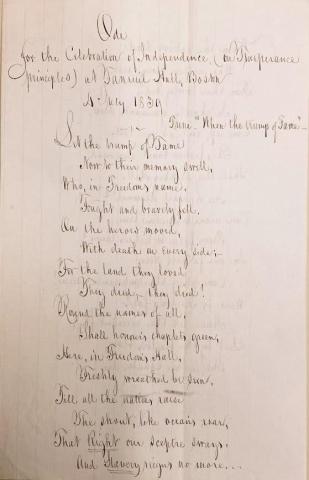 Ode
for the Celebration of Independence, (on Temperance
principles) at Faneuil Hall, Boston
4 July 1839
Tune "When the trump of Fame" –
Let the trump of Fame
Now to their memory swell,
Who, in Freedom's name,
Fought and bravely fell.
On the heroes moved,
With death on every side;–
For the land they loved
They died,– they died!
Round the names of all,
Shall honour's chaplets green,
Here, in Freedom's Hall,
Freshly wreathed be seen,
Till all the nations raise
The shout, like ocean's roar,
That Right our sceptre sways,
And Slavery reigns no more...